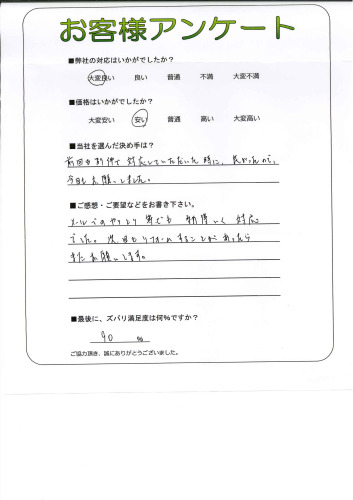 お客様アンケート
■弊社の対応はいかがでしたか?
大変良い 良い 普通 不満 大変不満
■価格はいかがでしたか?
大変安い 安い 普通 高い 大変高い
■当社を選んだ決め手は?
前回も 対応していただいた時に、良かったので、
今回もお願いしました。
■ご感想・ご要望などをお書き下さい。
メールでのやりとり 等でも 対応
でした。次回もリフォームすることがあったら
またお願いします。
■最後に、ズバリ満足度は何%ですか?
90 %
ご協力頂き、誠にありがとうございました。